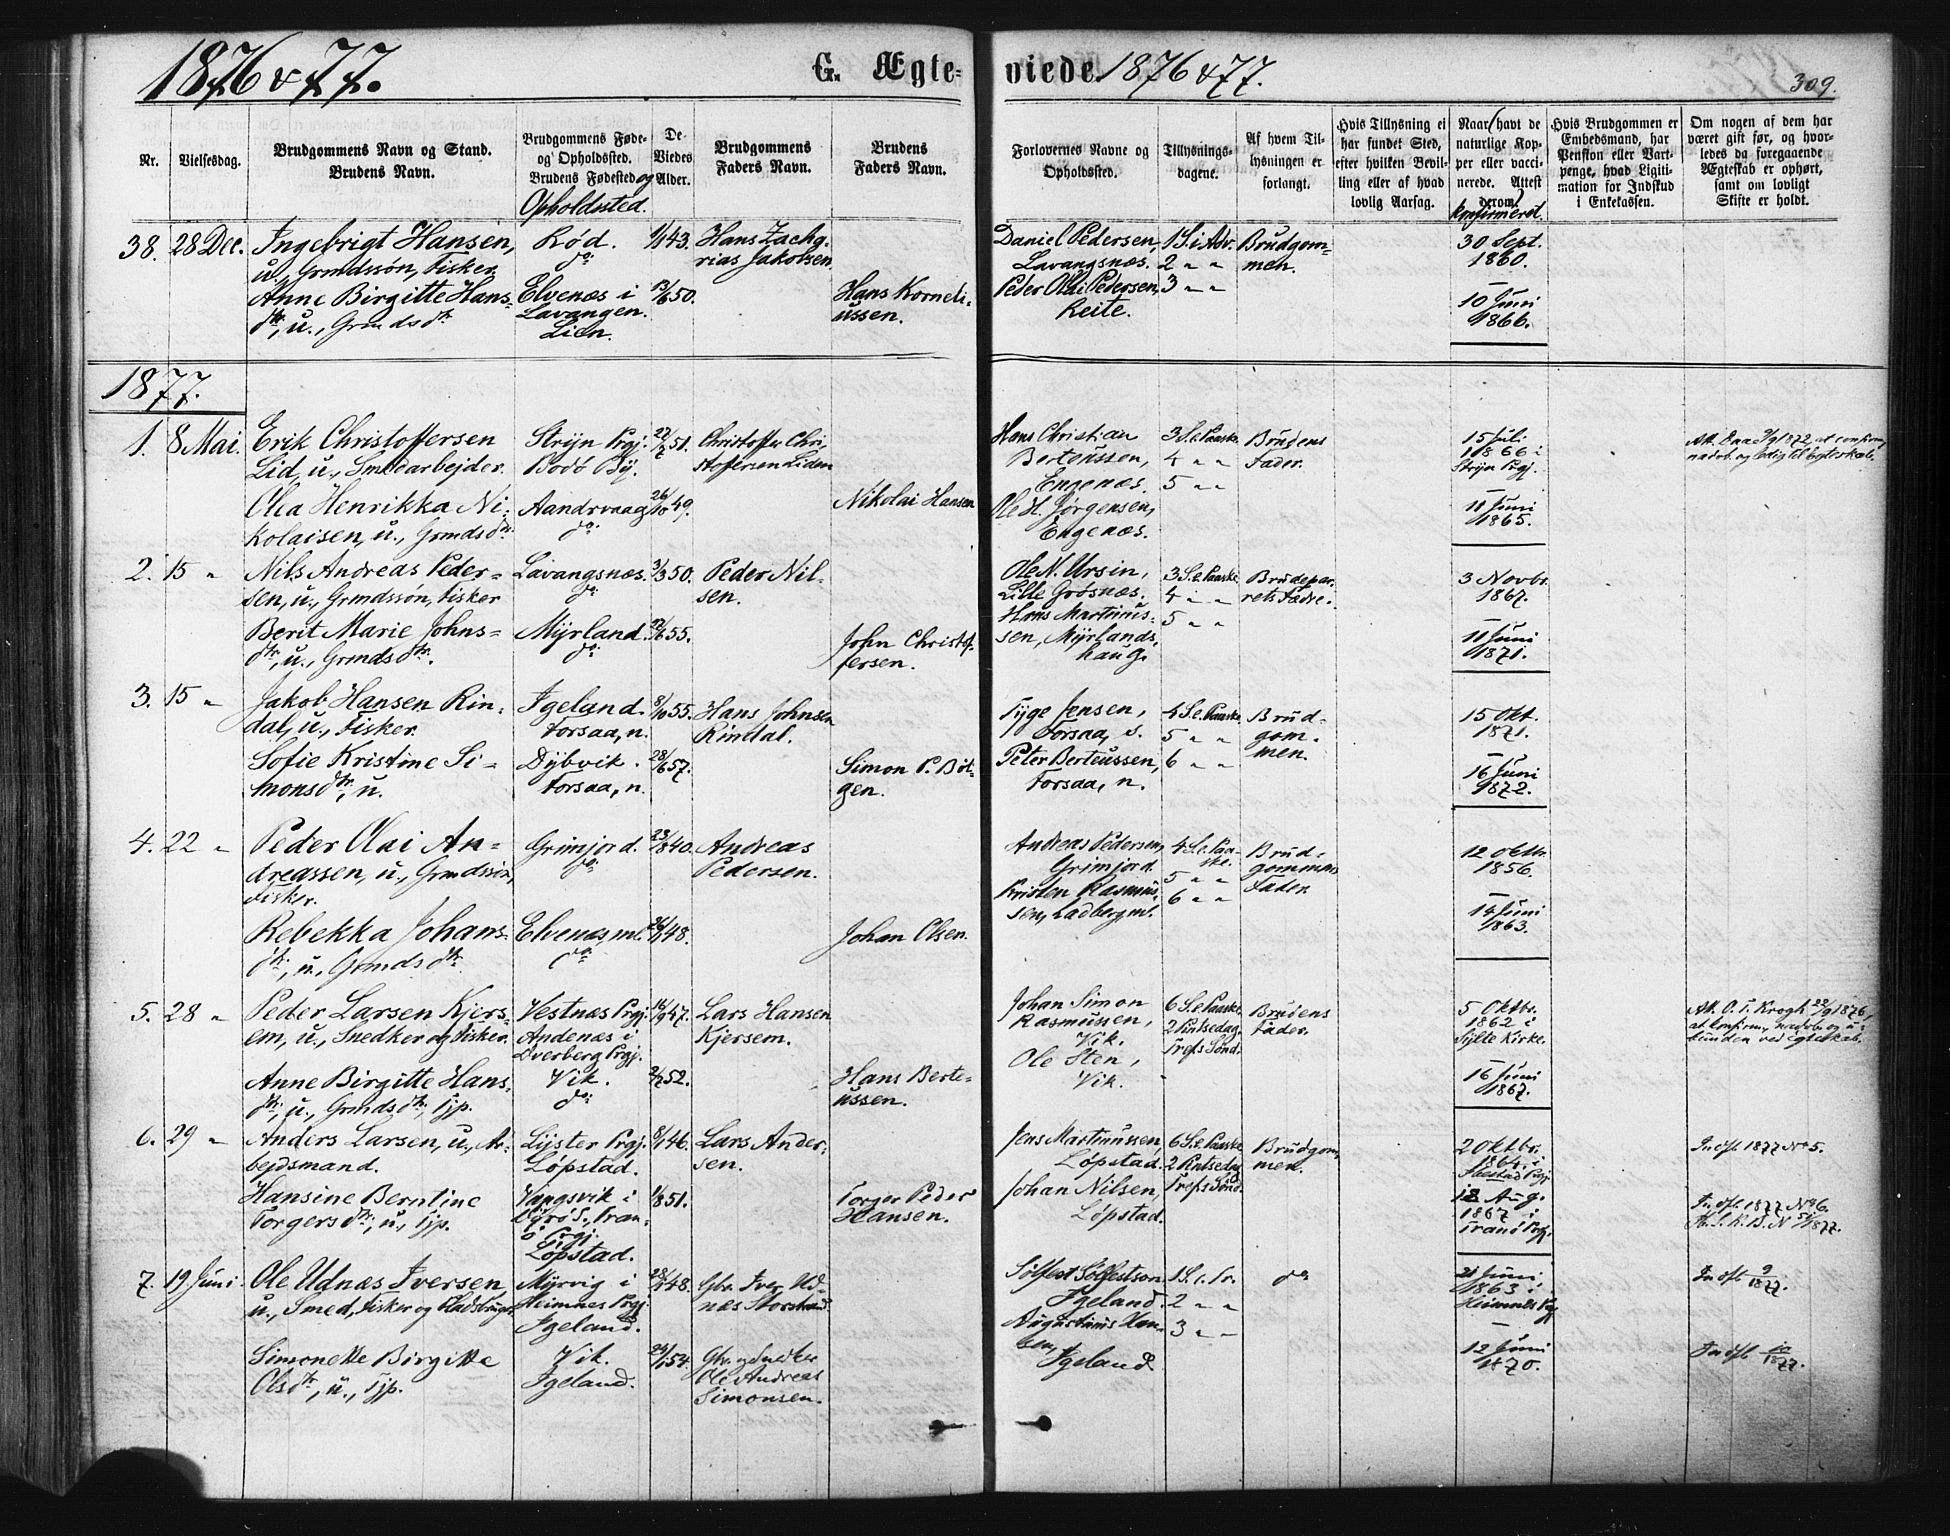 1876 & 77.
G. Ægte-
viede 1876 & 77.
309.
Nr.
Vielsesdag.
Brudgommens Navn og Stand.
Brudens Navn.
Brudgommens Føde-
og Opholdssted.
Brudens Fødested og
Opholdssted.
De
Viedes
Alder.
Brudgommens
Faders Navn.
Brudens
Faders Navn.
Forlovernes Navne og
Opholdssted.
Tillysnings-
dagene.
Af hvem Til-
lysningen er
forlangt.
Hvis Tillysning ei
har fundet Sted,
efter hvilken Bevil-
ling eller af hvad
lovlig Aarsag.
Naar havt de
naturlige Kop-
per eller vacci-
nerede. Attest
derom.
Konfirmeret.
Hvis Brudgommen er
Embedsmand, har
Pension eller Vart-
penge, hvad Ligiti-
mation for Indskud
i Enkekassen.
Om nogen af dem har
været gift før, og hvor-
ledes da foregaaende
Ægteskab er ophørt,
samt om lovligt
Skifte er holdt.
38. 28 Dec.
Ingebrigt Hansen,
u., Grmdssøn, Fisker
Anne Birgitte Hans-
dtr, u., Grmdsdtr
Rød.
do
Elvenæs i
Lavangen.
Lien.
1/1 43.
13/6 50.
Hans Zacha-
rias Jakobsen.
Hans Korneli-
ussen.
Daniel Pedersen,
Lavangsnæs.
Peder Olai Pedersen,
Reite.
1 S. i Adv.
2 " "
3 " "
Brudgom-
men.
30 Sept.
1860.
10 Juni
1866.
1877.
1. 8 Mai.
Erik Christoffersen
Lid, u., Smedarbejder.
Olea Henrikka Ni-
kolaisen, u., Grmdsdtr.
Stryn Prgj.
Bodø By.
Aandrvaag
do
27/2 51.
26/10 49.
Christoffer Chri-
stoffersen Liden
Nikolai Hansen
Hans Christian
Berteussen,
Engenæs.
Ole H. Jørgensen,
Engenæs.
3 S. e. Paaske.
4 " "
5 " "
Brudens
Fader.
15 Juli
1866 i
Stryn Prgj.
11 Juni
1865.
2. 15 "
Nils Andreas Peder-
sen, u., Grmdssøn, Fisker
Berit Marie Johns-
dtr, u., Grmdsdtr.
Lavangsnæs.
do
Myrland.
do
3/3 50.
Peder Nil-
sen.
John Christof-
fersen.
Ole N. Ursin,
Lille Grøsnæs.
Hans Martinus-
sen, Myrlands-
haug.
3 S. e. Paaske
4 " "
5 " "
Brudepar-
rets Fædre.
3 Novbr.
1867.
11 Juni
1871.
3. 15 "
Jakob Hansen Rin-
dal, u., Fisker.
Sofie Kristine Si-
monsdtr, u.
Igeland.
Forsaa, n.
Dybvik.
Forsaa, n.
8/10 55.
28/6 57.
Hans Johnsen
Rindal.
Simon P. Bøt-
gen.
Tyge Jensen,
Forsaa, s.
Peter Berteussen,
Forsaa, n.
4 S. e. Paaske.
5 " "
6 " "
Brud-
gom-
men.
15 Okt.
1871.
16 Juni
1872.
4. 22 "
Peder Olai An-
dreassen, u., Grmdssøn,
Fisker.
Rebekka Johans-
dtr, u., Grmdsdtr.
Grimjord.
do
Elvenæs ml.
do
23/8 40.
26/1 48.
Andreas
Pedersen.
Johan Olsen.
Andreas Pedersen,
Grimjord.
Kristen Rasmus-
sen, Ladberg ml.
4 S. e. Paa-
ske.
5 " "
6 " "
Brud-
gommens
Fader.
12 Oktbr.
1856.
14 Juni
1863.
5. 28 "
Peder Larsen Kjers-
em, u., Snedker og Fisker.
Anne Birgitte Hans-
dtr, u., Grmdsdtr, Tjp.
Vestnæs Prgj.
Andenæs i
Dverberg Prgj.
Vik.
do
16/9 47.
2/7 52.
Lars Hansen
Kjersem.
Hans Berte-
ussen.
Johan Simon
Rasmussen,
Vik.
Ole Sten,
Vik.
6 S. e. Paaske
2 Pintsedag.
Trefs Sønd.
Brudens
Fader.
5 Oktbr.
1862 i
Sylte Kirke.
16 Juni
1867.
Att. O. T. Krogh 22/9 1876,
at konfirm., nadvb. og u-
bunden ved Egteskab.
6. 29 "
Anders Larsen, u., Ar-
bejdsmand.
Hansine Berntine
Torgersdtr, u., Tjp.
Lyster Prgj.
Løpstad.
Vangsvik i
Dyrø S., Tran-
ø Prgj.
Løpstad.
8/1 46.
1/8 51.
Lars Ander-
sen.
Torger Peder
Hansen.
Jens Martinussen,
Løpstad.
Johan Nilsen,
Løpstad.
6 S. e. Paaske
2 Pintsedag
Trefs Sønd.
Brudgom-
men.
2 Oktbr.
Ibestad Prgj.
18 Aug.
1867 i
Tranø Prgj.
Indfl. 1877 No 5.
Indfl. 1877 No 6.
7. 19 Juni.
Ole Udnæs Iversen
u., Smed, Fisker og Pladsbruger.
Simonette Birgitte
Olsdtr, u., Tjp.
Myrvig i
Heimnes Prgj.
Igeland.
Vik.
Igeland.
28/4 48.
23/1 54.
Gbr. Iver Ud-
næs Storstrand.
Gbr. og Snedker
Ole Andreas
Simonsen.
Sølfest Sølfestson
Igeland.
Augustinus Han-
sen,
Igeland.
1 S. e. Tr.
2 " "
3 " "
do
21 Juni
1863 i
Heimnes Prgj.
12 Juni
1870.
Indfl. 9/1877.
Indfl. 10/1877.